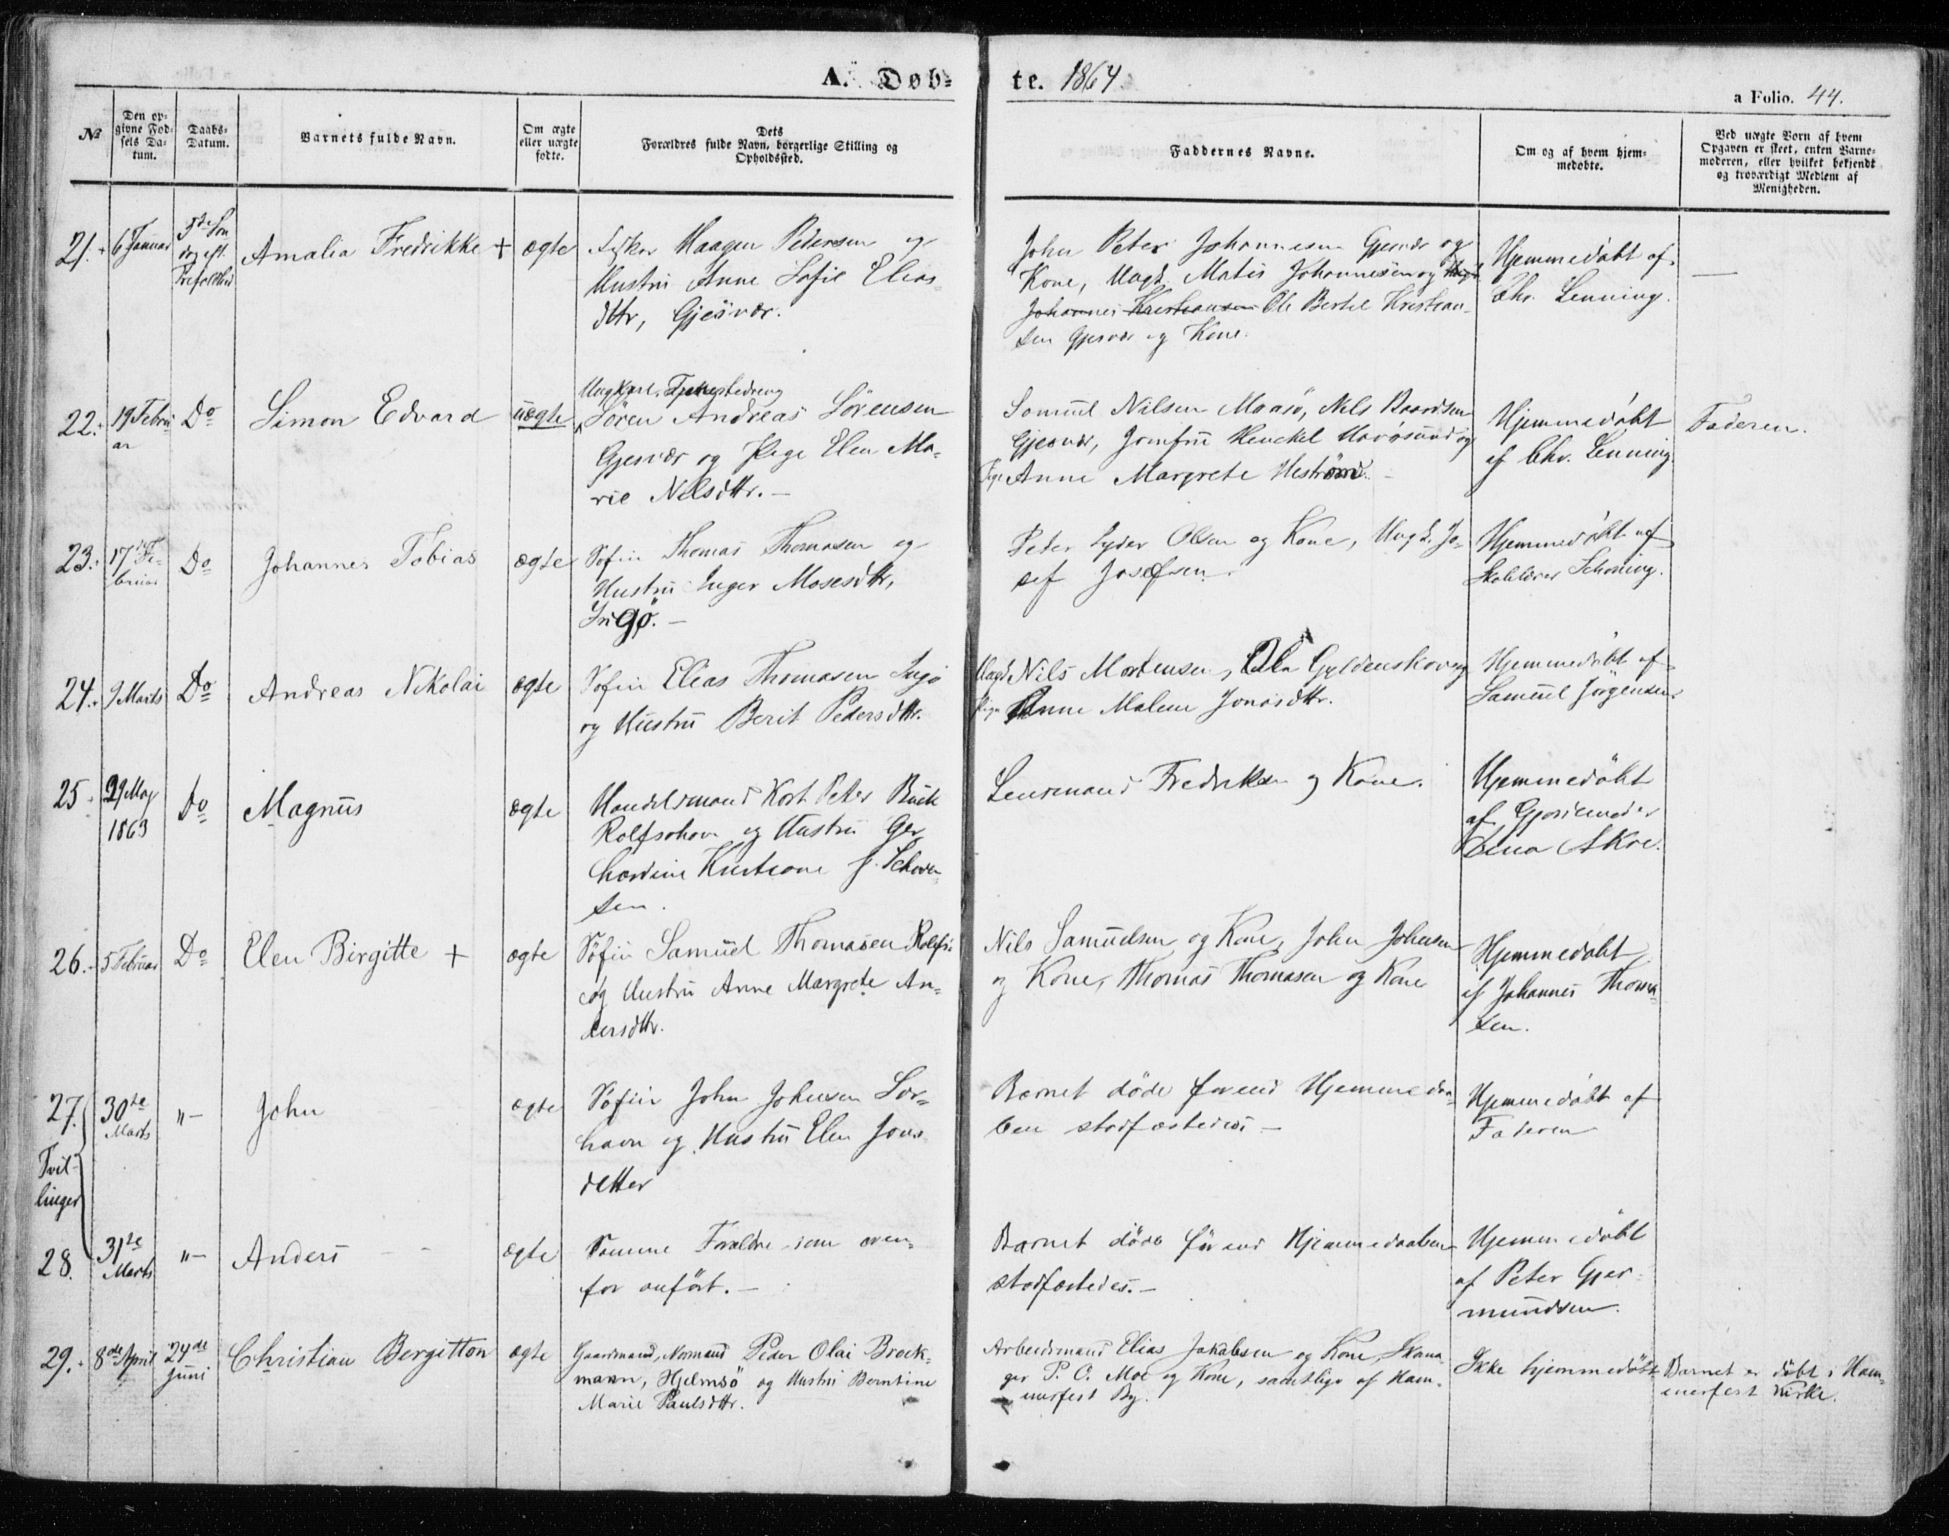 A. Døb-
te. 1864.
a Folio. 44.
№
Den op-
givne Fød-
sels Da-
tum.
Daabs-
Datum.
Barnets fulde Navn.
Om ægte
eller uægte
fødte.
Dets
Forældres fulde Navn, borgerlige Stilling og
Opholdssted.
Faddernes Navne.
Om og af hvem hjem-
medøbte.
Ved uægte Børn af hvem
Opgaven er skeet, enten Barne-
moderen, eller hvilket bekjendt
og troværdigt Medlem af
Menigheden.
21.
6 Januar
Amalia Fredrikke +
ægte
Fisker Haagen Pedersen og
Hustru Anne Sofie Elias-
dttr, Gjesvær.
John Peter Johannesen Gjesvær og
Kone, Ungk. Matis Johannesen og
Johannes Kristiansen Ole Bertel Kristian-
sen Gjesvær og Kone.
Hjemmedøbt af
Chr. Lenning.
—
22.
19 Febru
ar
Do
Simon Edvard
uægte
Ungkarl, Tjenestedreng
Søren Andreas Sørensen
Gjesvær og Pige Elen Ma-
rie Nilsdttr. —
Samuel Nilsen Maasø, Nils Baardsen
Gjesvær, Jomfru Henckel Havøsund og
Pige Anne Margrete
Hjemmedøbt
af Chr. Lenning.
Faderen.
23.
17de Fe-
bruar
Do
Johannes Tobias
ægte
Søfin Thomas Thomasen og
Hustru Inger Mosesdttr,
Ingø. —
Peder Lyder Olsen og Kone, Ungk. Jo-
sef Josefsen.
Hjemmedøbt af
Skolelærer Schøning.
24.
9 Marts
Do
Andreas Nikolai
ægte
Søfin Elias Thomasen Ingø
og Hustru Berit Pedersdttr.
Ungk Nils Mortensen, Ola Gyldenskov og
Pige Anne Malene Jonasdttr.
Hjemmedøbt af
Samuel Jørgensen.
25
29 May
1863
Do
Magnus
ægte
Handelsmand Kort Peter Buck
Rolfsohavn og Hustru Ger
hardine Kristiane f. Schøn-
sen.
Lensmand Fredriksen og Kone.
Hjemmedøbt
af Gjordemoder
Lina Moe.
26.
5 Februar
Do
Elen Birgitte +
ægte
Søfin Samuel Thomasen Rolfsø
og Hustru Anne Margrete An-
dersdttr.
Nils Samuelsen og Kone, John Johnsen
og Kone, Thomas Thomasen og Kone
Hjemmedøbt
af Johannes Thoma-
sen.
27.
30te
Marts
"—
John
ægte
Søfin John Johnsen Sør-
havn og Hustru Elen Jons-
datter
Barnet døde førend Hjemmedaa-
ben stadfæstedes —
Hjemmedøbt af
Faderen
Tvil-
linger
28.
31te
Marts
"—
Anders
ægte
Samme Forældre som oven-
for anført. —
Barnet døde førend Hjemmedaaben
stadfæstedes. —
Hjemmedøbt
af Peter Gjer-
mundsen.
29.
8de April
24de
Juni
Christian Bergitton
ægte
Gaardmand, Normand Peder Olai Brock-
mann, Hjelmsö og Hustru Berntine
Marie Paulsdttr.
Arbeidsmand Elias Jakobsen og Kone, Skoma-
ger P. C. Moe og Kone, samtlige af Ham-
merfest By.
Ikke hjemmedøbt
Barnet er døbt i Ham-
merfest Kirke.